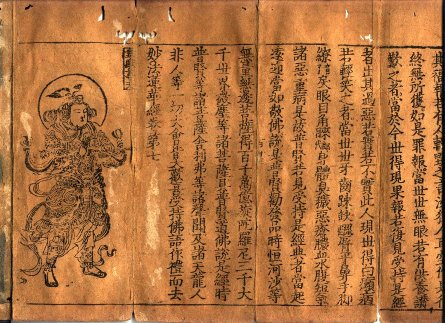 終無所獲如是罪報當世世無眼若有供養讚
歎之者當於今世得現果報若復見受持是經
者出其過惡若實若不實此人現世得白癩病
若輕笑之者當世世牙齒疎缺醜脣平鼻手脚
繚戾眼目角睞身體臭穢惡瘡膿血水腹短氣
諸惡重病是故普賢若見受持是經典者當起
遠迎當如敬佛說是普賢勸發品時恒河沙等
無量無邊菩薩得百千萬億旋陀羅尼三千大
千世界微塵等諸菩薩具普賢道佛說是經時
普賢等諸菩薩舍利弗等諸聲聞及諸天龍人
非人等一切大會皆大歡喜受持佛語作禮而去
妙法蓮華經卷第七